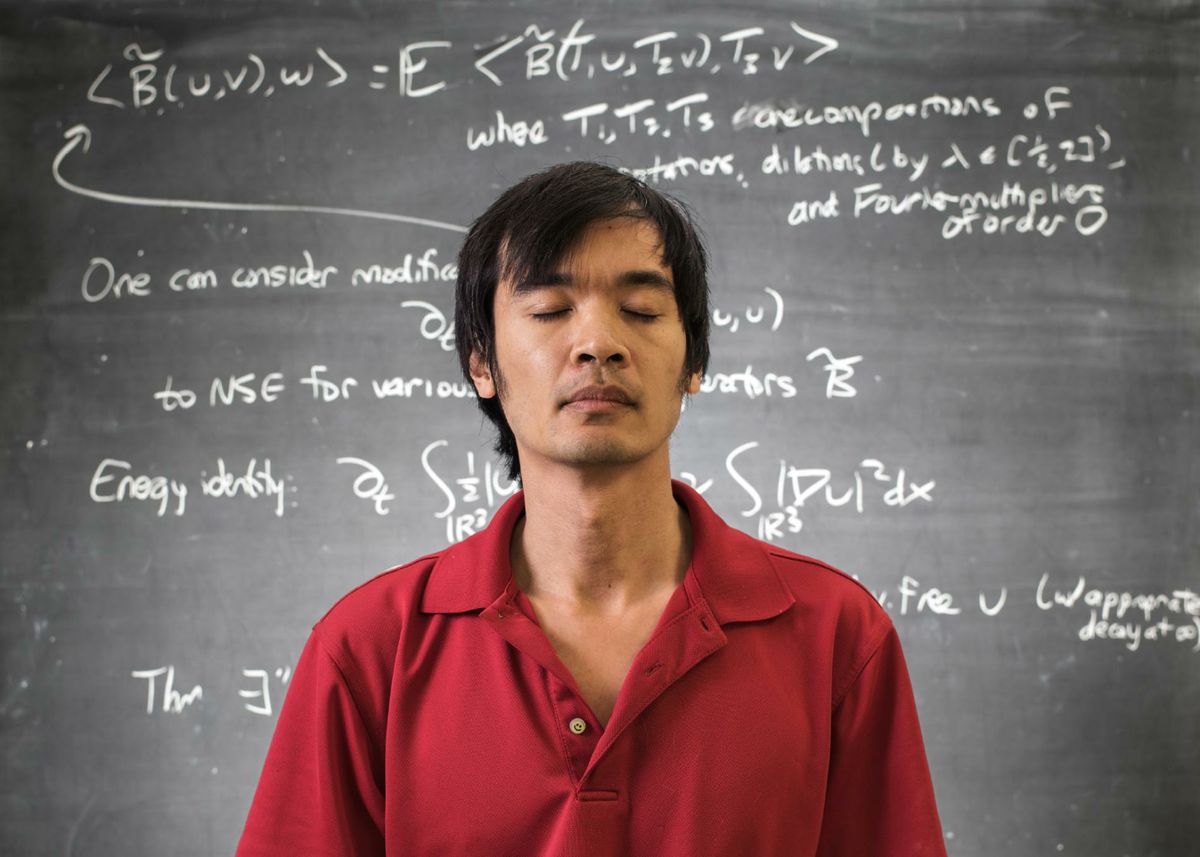 <B̃(u,v),w> = 𝔼 <B̃(T₁u,T₂v),T₃v>
where T₁,T₂,T₃ are compositions of
rotations, dilations (by λ ∈ [½,2]),
and Fourier multipliers
of order 0
One can consider modifica
∂ₜ u,u)
to NSE for various erators B̃.
Energy identity: ∂ₜ ∫_ℝ³ ½|u ∫_ℝ³ |∇u|²dx
v. free u (w/ appropriate
decay at ∞)
Thm ∃"